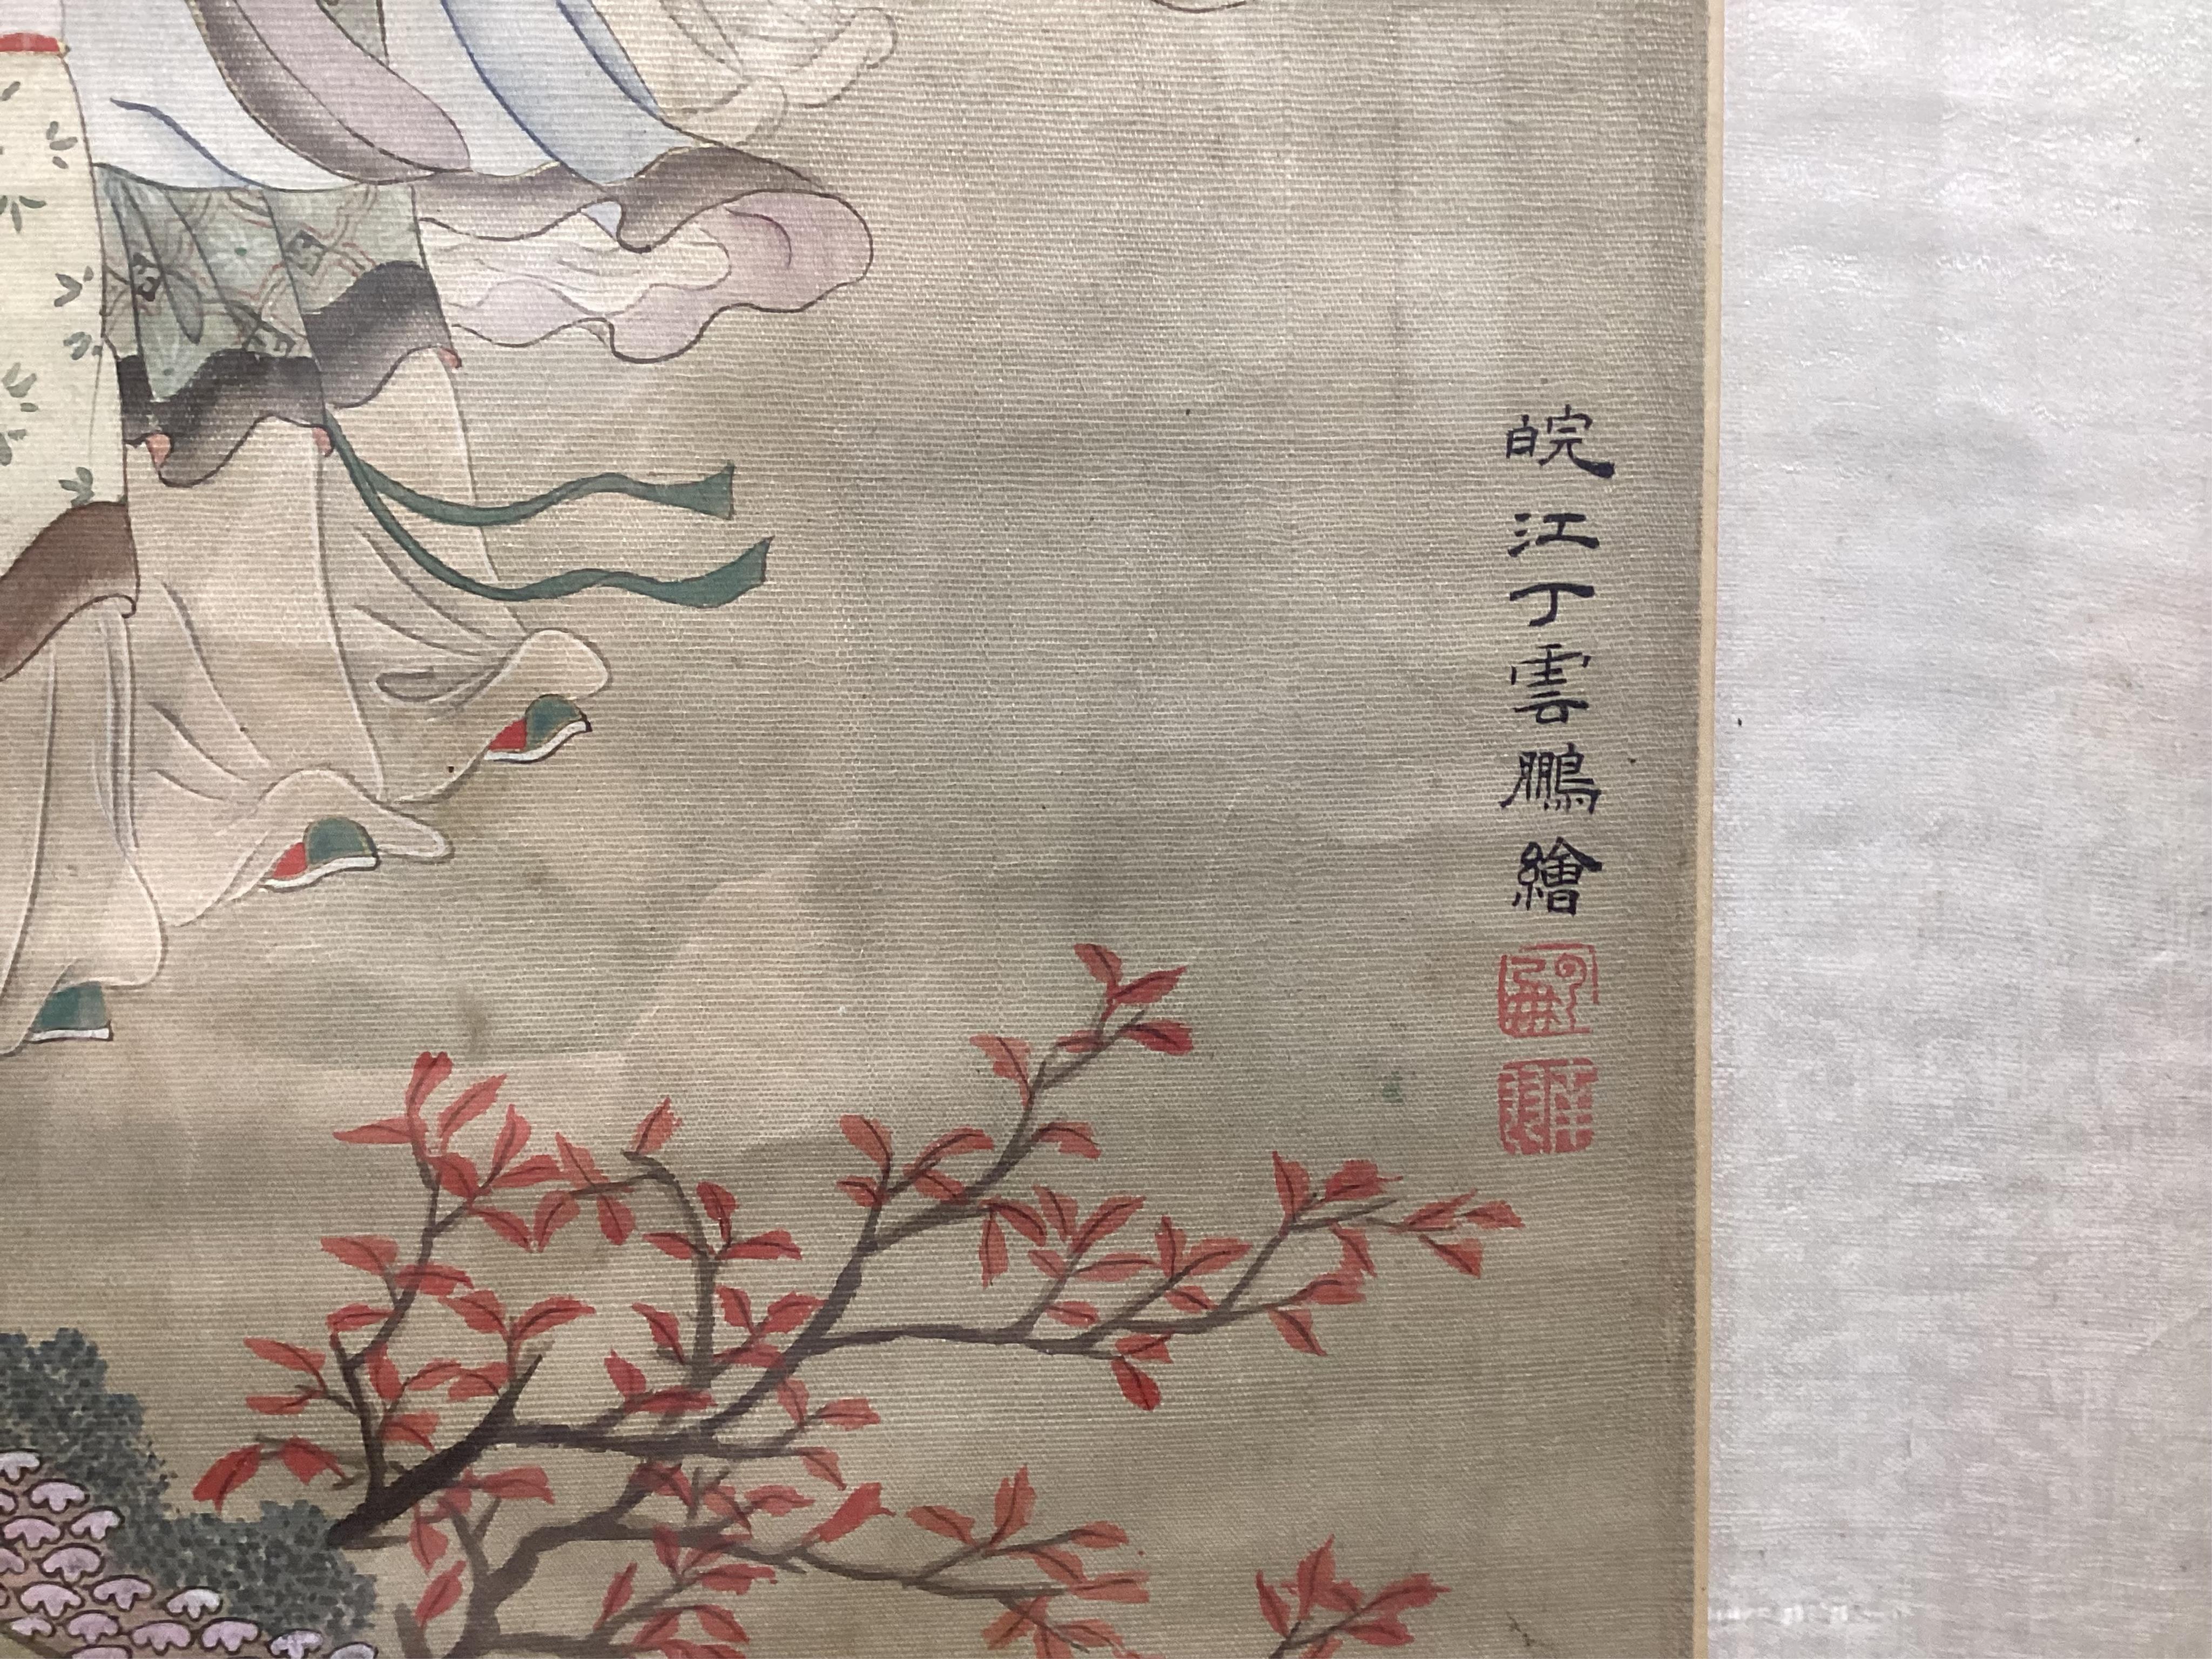 皖江丁雲鵬繪